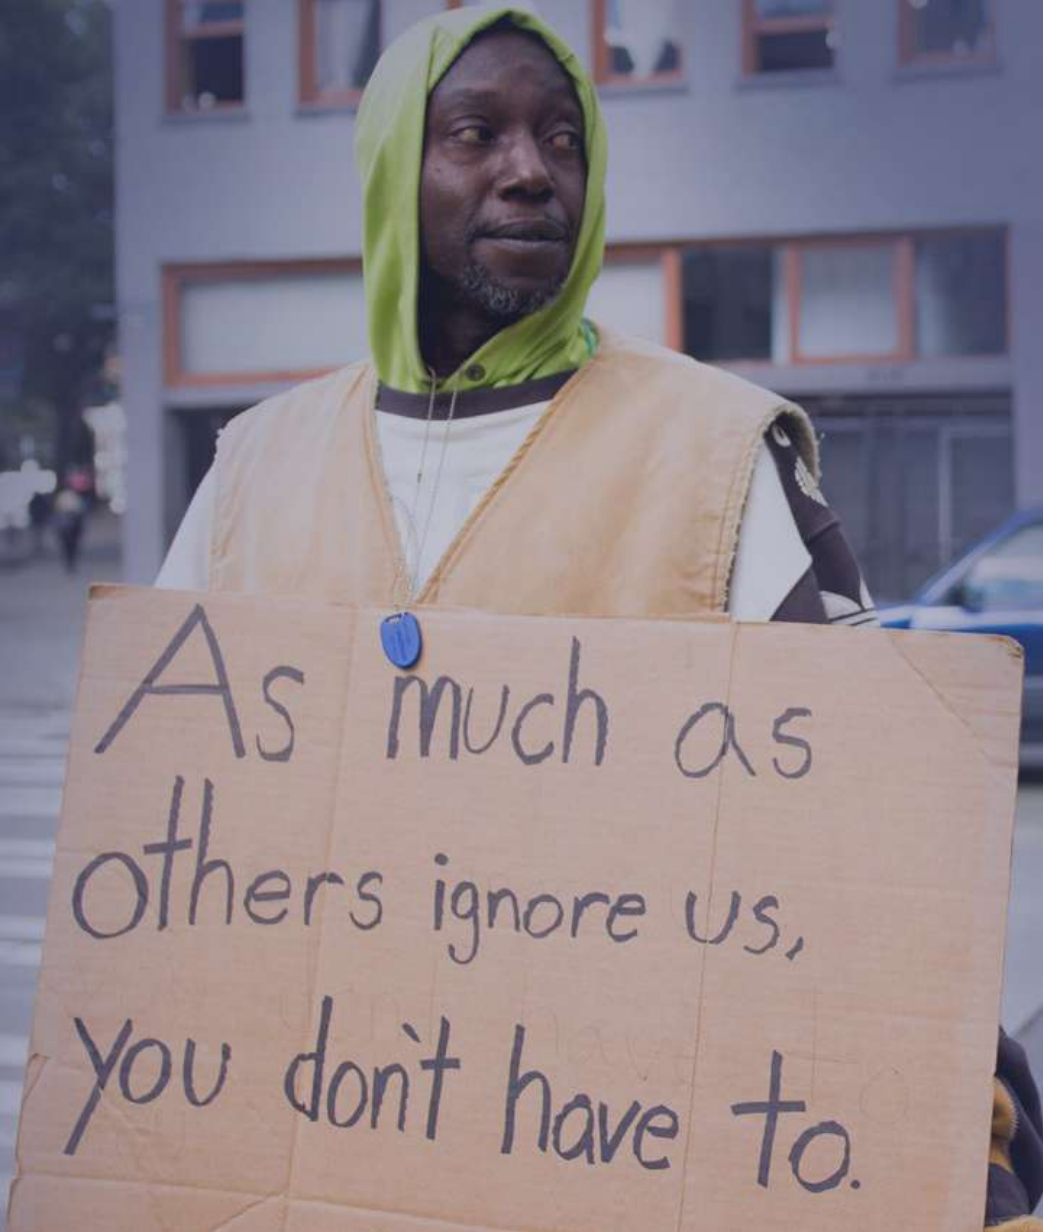 As much as
others ignore us,
you don't have to.